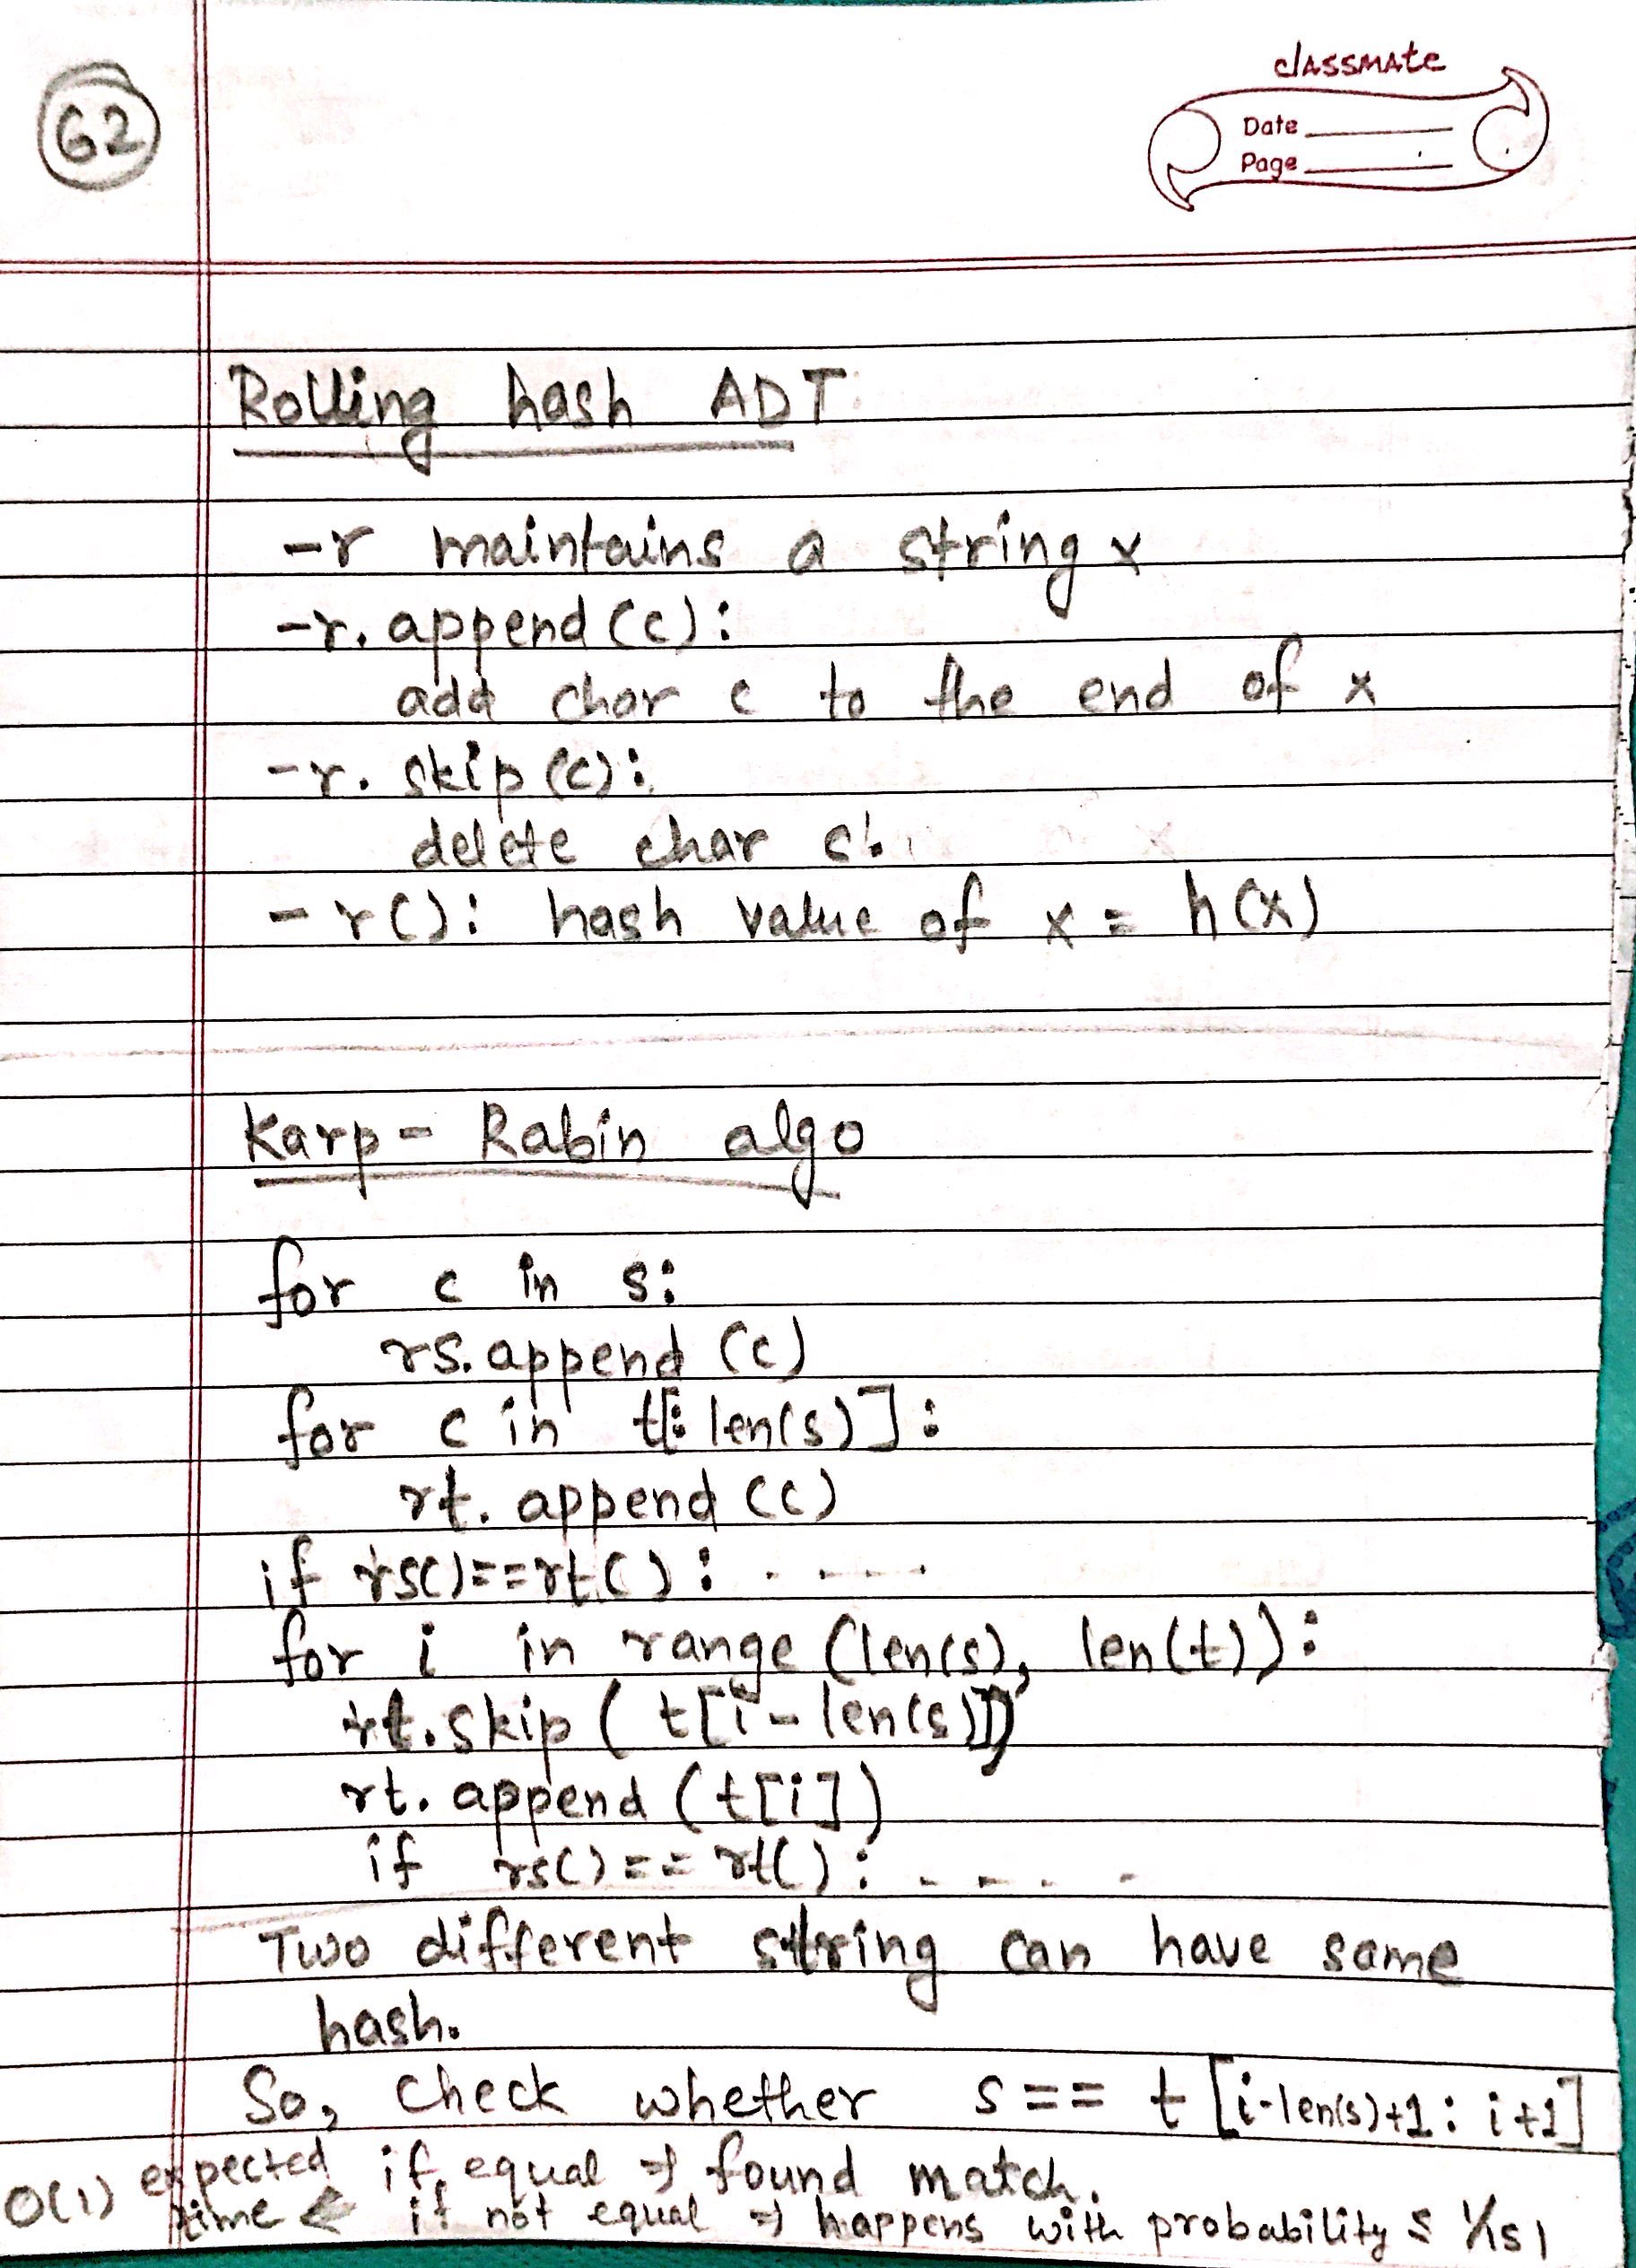 62
classmate
Date
Page
Rolling hash ADT
-r maintains a string x
-r.append(c):
add char c to the end of x
-r. skip (c):
delete char c.
- r(): hash value of x = h(x)
Karp-Rabin algo
for c in s:
rs.append (c)
for c in t[:len(s)]:
rt. append (c)
if rs()==rt():.....
for i in range (len(s), len(t)):
rt.skip ( t[i-len(s)])
rt. append (t[i])
if rs()== rt():.....
Two different string can have same
hash.
So, check whether s== t [i-len(s)+1: i+1]
if equal ⇒ found match.
O(1) expected time ⇐ if not equal ⇒ happens with probability ≤ 1/|s|